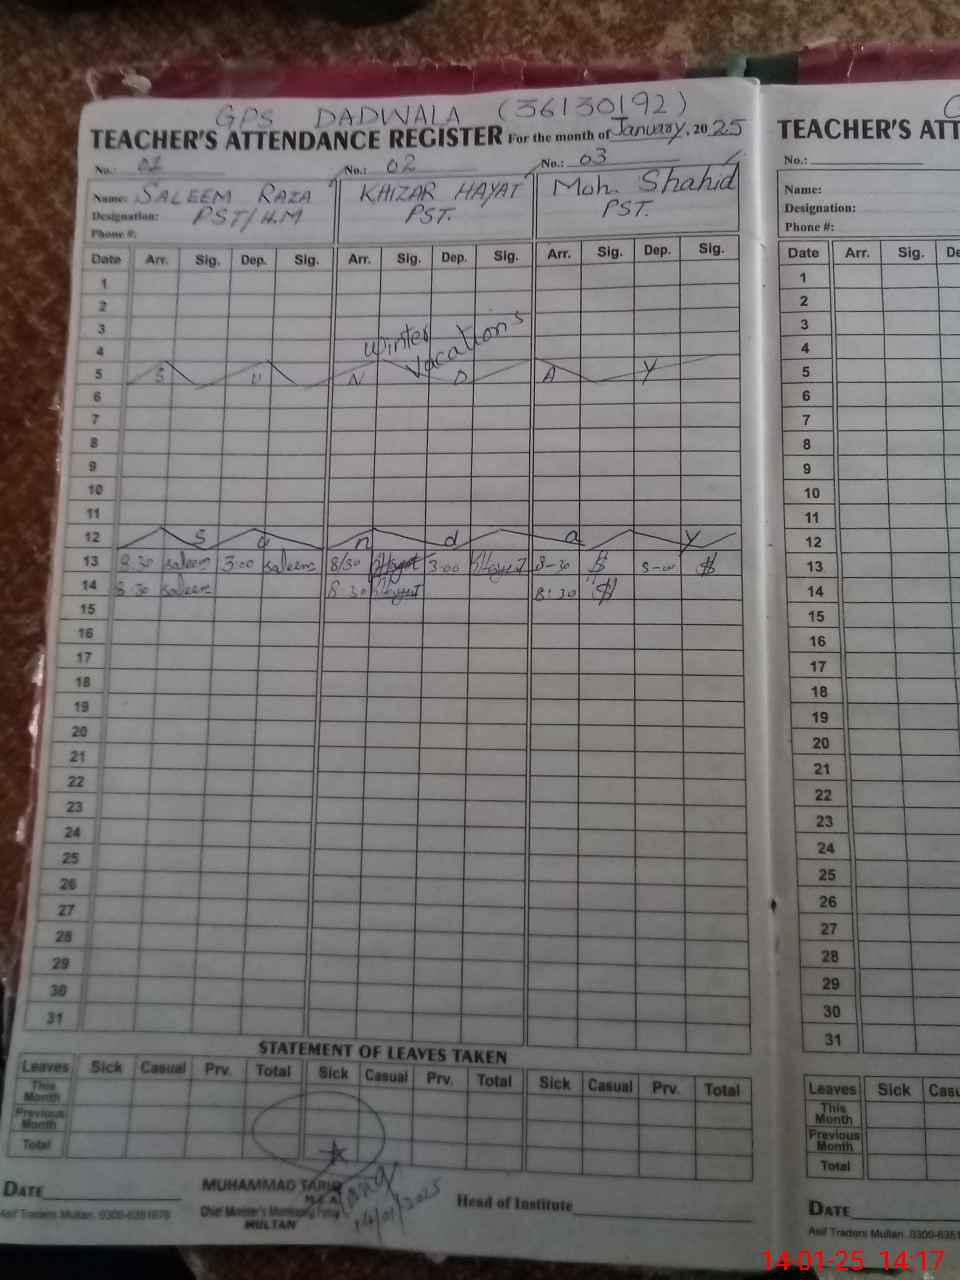 GPS DADWALA (36130192)
TEACHER'S ATTENDANCE REGISTER For the month of January, 2025
No.: 01 No.: 02 No.: 03
Name: SALEEM RAZA KHIZAR HAYAT Moh. Shahid
Designation: PST/H.M PST. PST.
Phone #:
Date Arr. Sig. Dep. Sig. Arr. Sig. Dep. Sig. Arr. Sig. Dep. Sig.
1
2
3 Winter
4 Vacations
5 S U N D A Y
6
7
8
9
10
11
12 S u n d a y
13 8:30 saleem 3:00 saleem 8/30 3:00 8-30 3-00
14 8:30 saleem 8:30 8:30
15
16
17
18
19
20
21
22
23
24
25
26
27
28
29
30
31
STATEMENT OF LEAVES TAKEN
Leaves Sick Casual Prv. Total Sick Casual Prv. Total Sick Casual Prv. Total
This Month
Previous Month
Total
MUHAMMAD TARIQ
M.E.A
Chief Minister's Monitoring Force
MULTAN
14/01/2025
DATE Head of Institute
Asif Traders Multan. 0300-6351678
TEACHER'S ATT
No.:
Name:
Designation:
Phone #:
Date Arr. Sig. De
1
2
3
4
5
6
7
8
9
10
11
12
13
14
15
16
17
18
19
20
21
22
23
24
25
26
27
28
29
30
31
Leaves Sick Casu
This Month
Previous Month
Total
DATE
Asif Traders Multan. 0300-6351
14-01-25 14:17